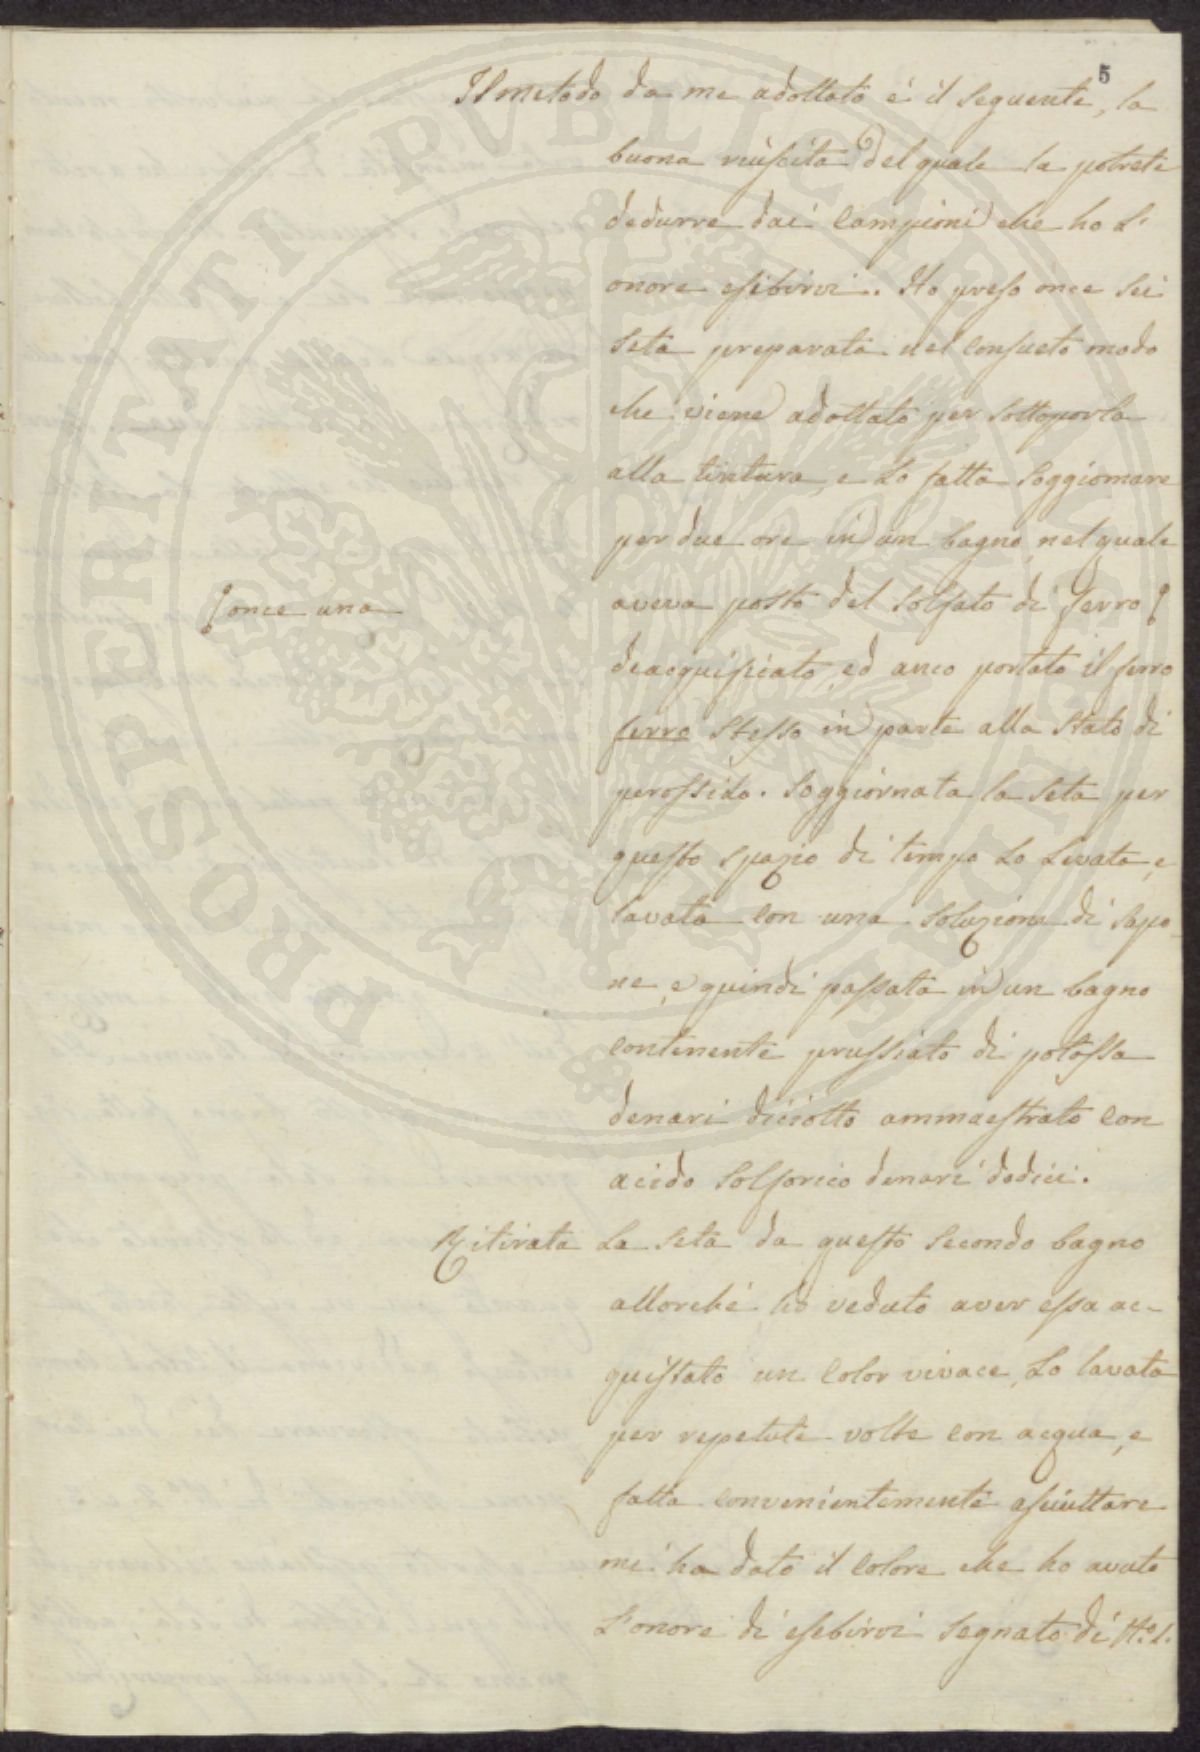 5
Il metodo da me adottato é il seguente, la
buona riuscita del quale la potrete
dedurre dai Campioni che ho l'
onore esibirvi. Ho preso once sei
seta preparata nel Consueto modo
che viene adottato per sottoporla
alla tintura, e Lo fatta soggiornare
per due ore in un bagno nel quale
aveva posto del Solfato di ferro
once una
deacquificato, ed anco portato il ferro
ferro stesso in parte alla stato di
perossido. Soggiornata la seta per
questo spazio di tempo Lo Levata, e
lavata Con una Soluzione di Sapo-
ne, e quindi passata in un bagno
Contenente prussiato di potassa
denari diciotto ammaestrato Con
acido Solforico denari dodici.
Ritirata La Seta da questo Secondo bagno
allorché ho veduto aver essa ac-
quistato un Color vivace, Lo lavata
per repetute volte Con acqua, e
fatta Convenientemente asciuttare
mi ha dato il Colore che ho avuto
L'onore di esebirvi Segnato di N.o 1.
PROSPERITATI PVBLICAE AVGENDAE